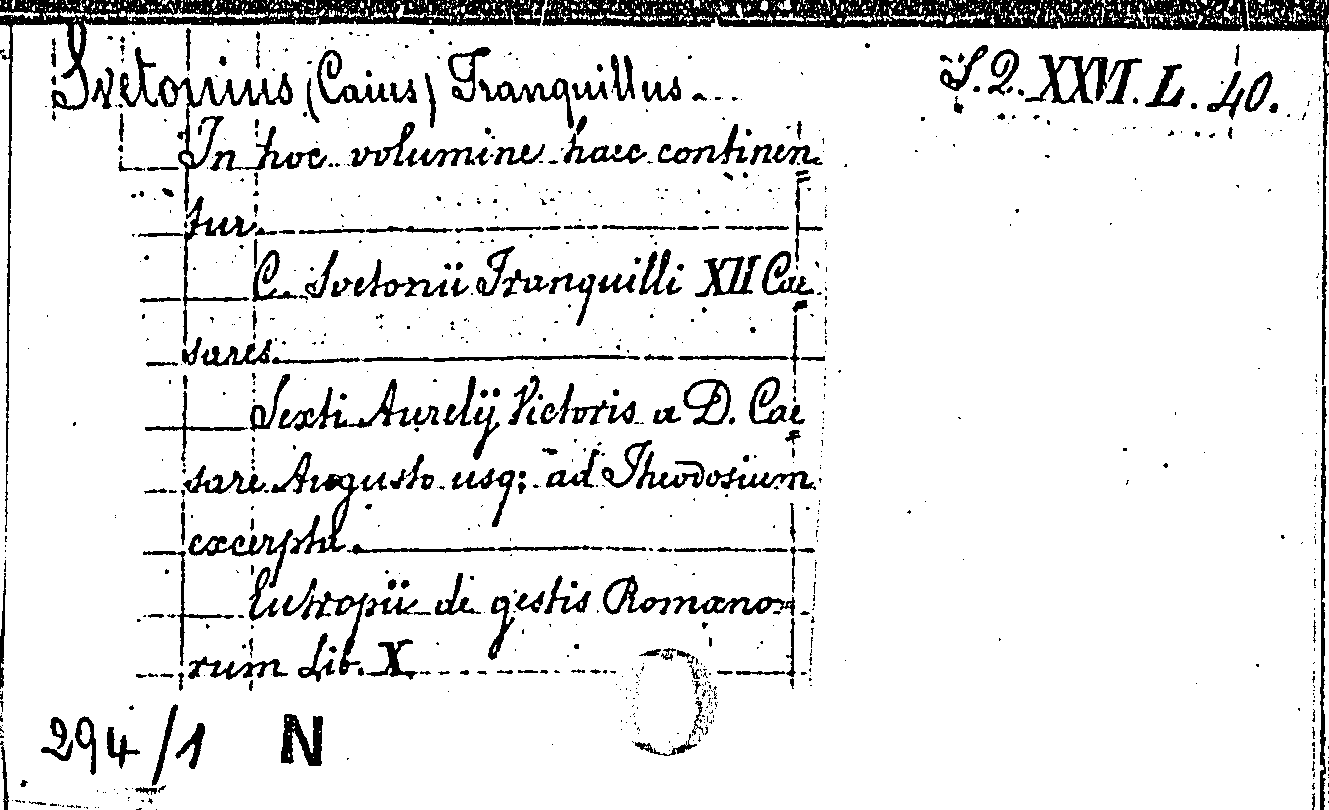 Svetonius (Caius) Tranquillus. S. Q. XXVI. L. 40.
In hoc volumine haec continen=
tur.
C. Svetonii Tranquilli XII Cae=
sares.
Sexti Aurelij Victoris a D. Cae=
sare Augusto usq; ad Theodosium
excerpta.
Eutropii de gestis Romano=
rum Lib. X.
294/1 N